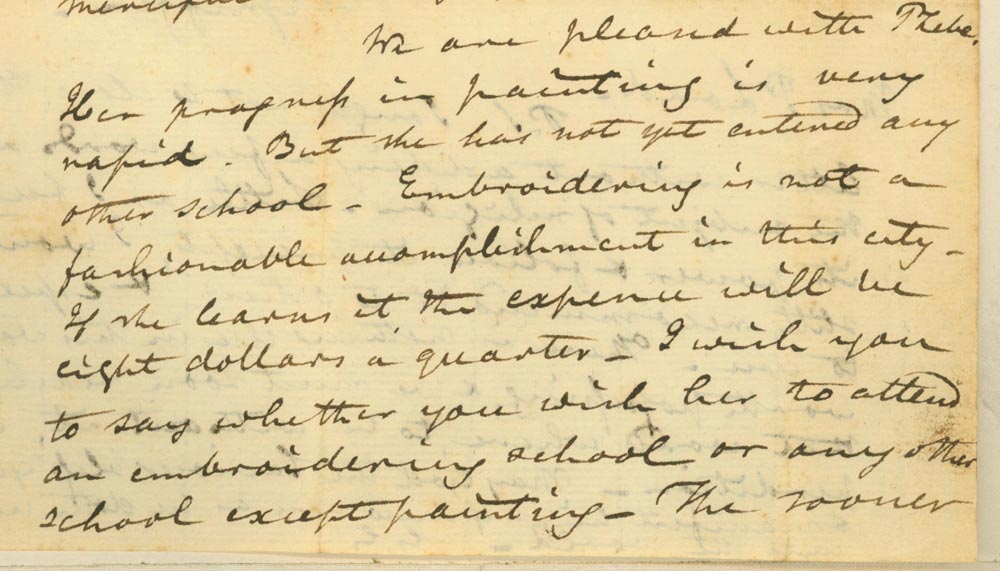 We are pleased with Phebe.
Her progress in painting is very
rapid. But she has not yet entered any
other school - Embroidering is not a
fashionable accomplishment in this city -
If she learns it the expence will be
eight dollars a quarter - I wish you
to say whether you wish her to attend
an embroidering school or any other
school except painting - The sooner